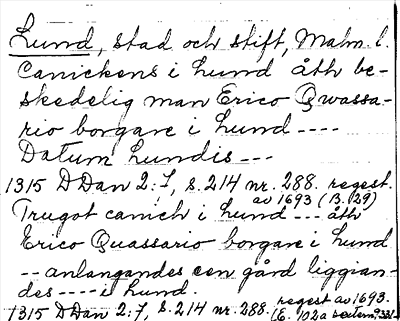 Lund, stad och stift, Malm. l.
Canickens i Lund åth be-
skedelig man Erico Qwassa-
rio borgare i Lund ----
Datum Lundis ---
1315 DDan 2:7, s. 214 nr. 288. regest.
av 1693 (B. 29)
Trugot canich i Lund --- åth
Erico Quassario borgare i Lund
-- anlangandes een gård liggian-
des ---- i Lund.
1315 DDan 2:7, s. 214 nr. 288. regest av 1693.
(6. 102a